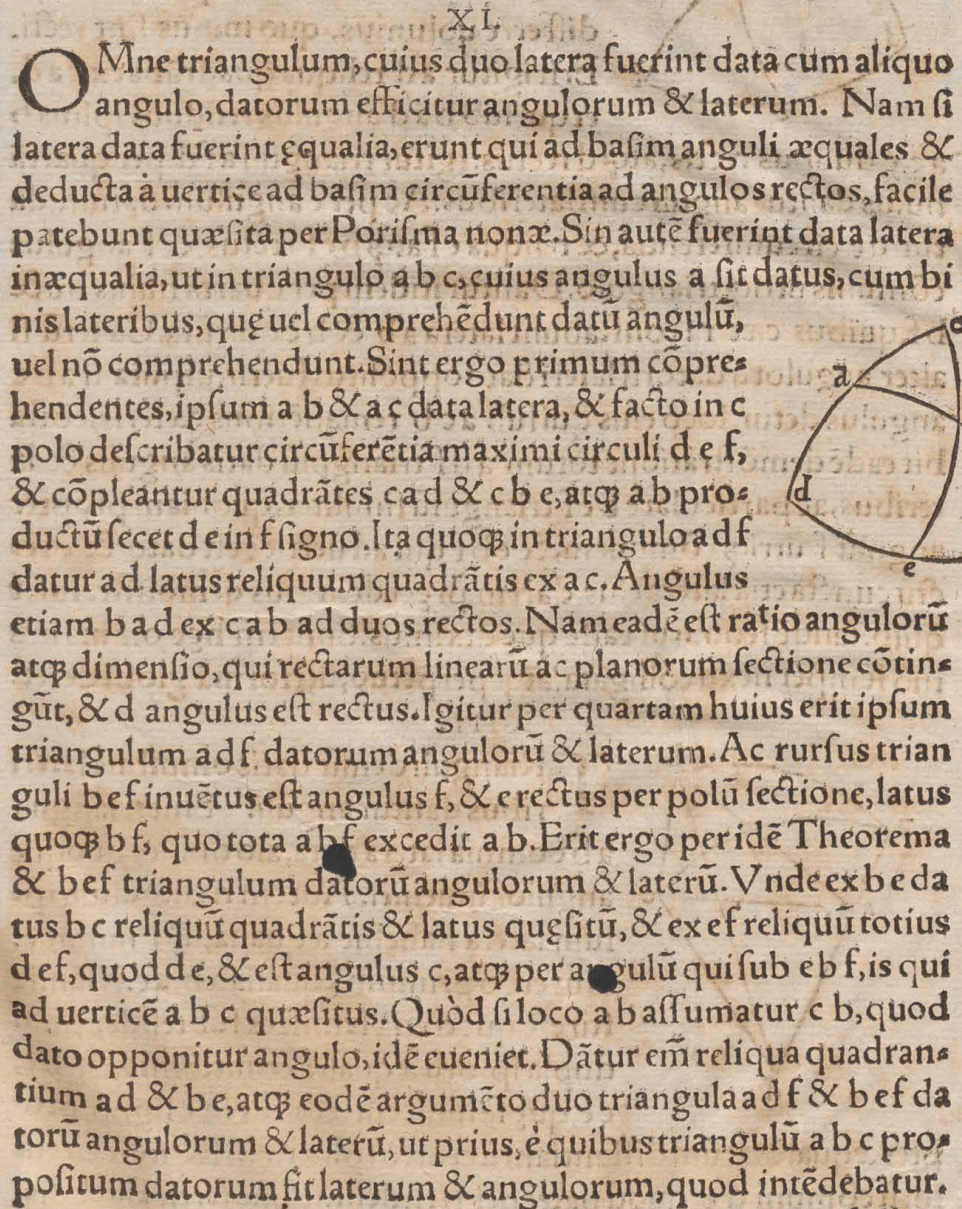 XI.
OMne triangulum, cuius duo latera fuerint data cum aliquo
angulo, datorum efficitur angulorum & laterum. Nam ſi
latera data fuerint ęqualia, erunt qui ad baſim anguli æquales &
deducta à uertice ad baſim circũferentia ad angulos rectos, facile
patebunt quæſita per Poriſma nonæ. Sin autẽ fuerint data latera
inæqualia, ut in triangulo a b c, cuius angulus a ſit datus, cum bi
nis lateribus, quę uel comprehẽdunt datũ angulũ,
uel nõ comprehendunt. Sint ergo primum cõpre⸗
hendentes, ipſum a b & a c data latera, & facto in c
polo deſcribatur circũferẽtia maximi circuli d e f,
& cõpleantur quadrãtes c a d & c b e, atqꝫ a b pro⸗
ductũ ſecet d e in f ſigno. Ita quoqꝫ in triangulo a d f
datur a d latus reliquum quadrãtis ex a c. Angulus
etiam b a d ex c a b ad duos rectos. Nam eadẽ eſt ratio angulorũ
atqꝫ dimenſio, qui rectarum linearũ ac planorum ſectione cõtin⸗
gũt, & d angulus eſt rectus. Igitur per quartam huius erit ipſum
triangulum a d f datorum angulorũ & laterum. Ac rurſus trian
guli b e f inuẽtus eſt angulus f, & e rectus per polũ ſectione, latus
quoqꝫ b f, quo tota a b f excedit a b. Erit ergo per idẽ Theorema
& b e f triangulum datorũ angulorum & laterũ. Vnde ex b e da
tus b c reliquũ quadrãtis & latus quęſitũ, & ex e f reliquũ totius
d e f, quod d e, & eſt angulus c, atqꝫ per angulũ qui ſub e b f, is qui
ad uerticẽ a b c quæſitus. Quòd ſi loco a b aſſumatur c b, quod
dato opponitur angulo, idẽ eueniet. Dãtur em̃ reliqua quadran⸗
tium a d & b e, atqꝫ eodẽ argumẽto duo triangula a d f & b e f da
torũ angulorum & laterũ, ut prius, è quibus triangulũ a b c pro⸗
poſitum datorum fit laterum & angulorum, quod intẽdebatur.
a
d
e